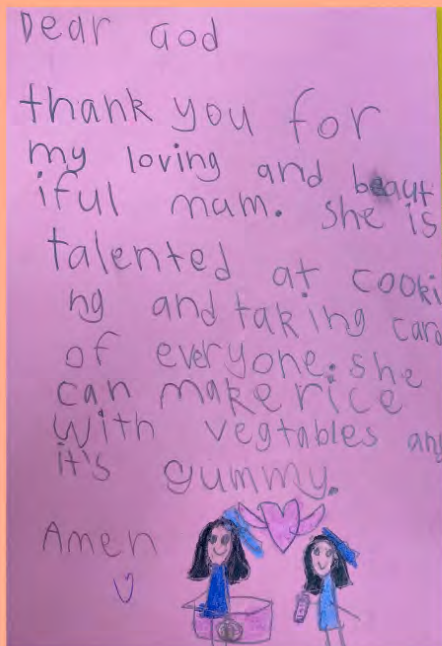 Dear God
thank you for
my loving and beaut
iful mam. she is
talented at cooki
ng and taking care
of everyone. she
can make rice
with vegtables and
it's yummy.
Amen